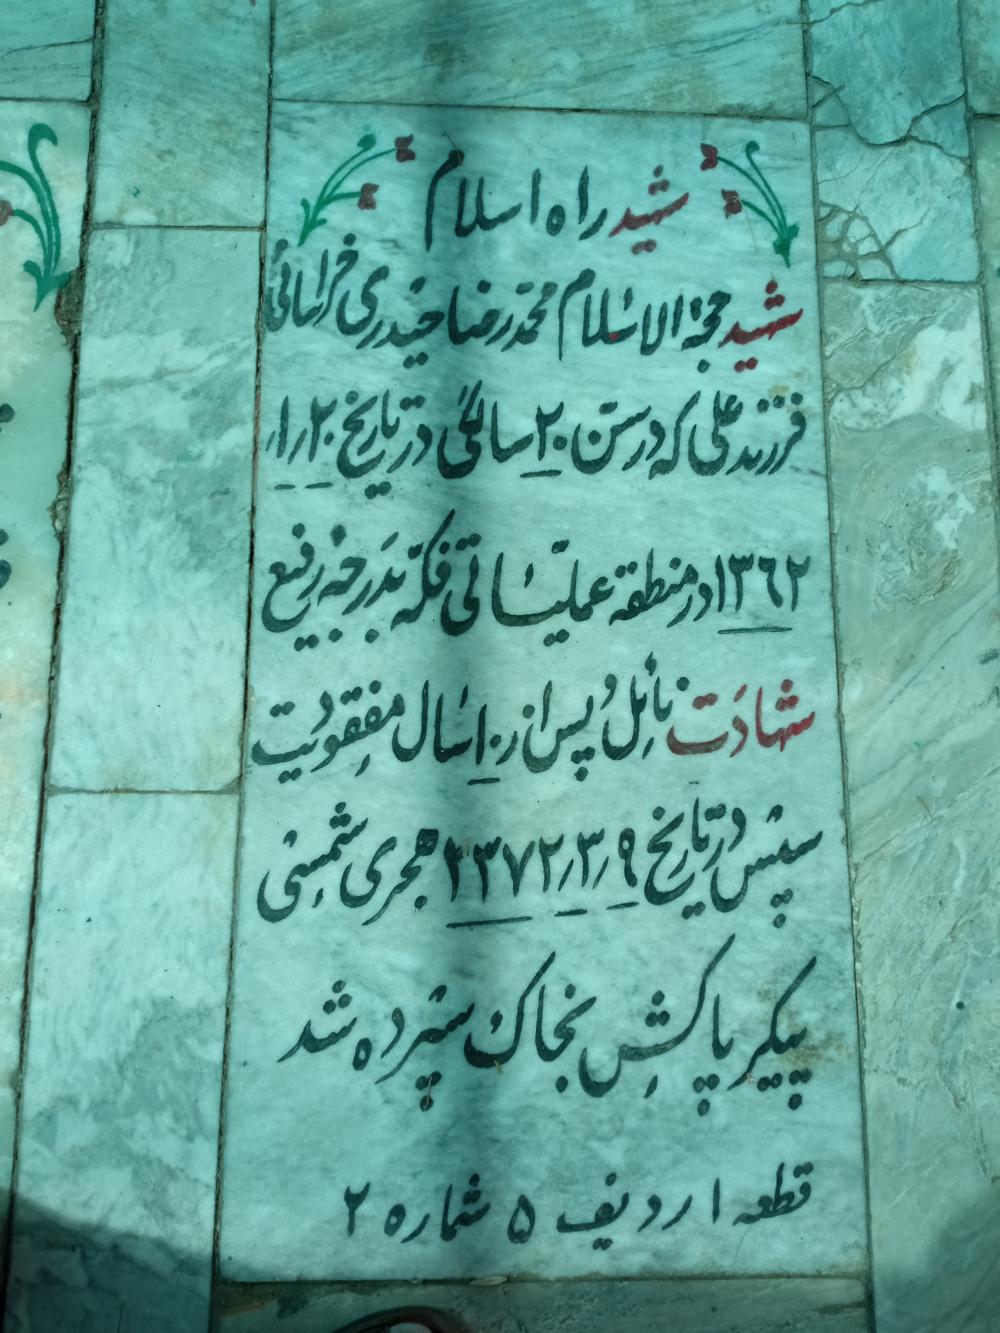 شهید راه اسلام
شهید حجة الاسلام محمدرضا حیدری خراسانی
فرزند علی که در سن ۲۰ سالگی در تاریخ ۲۰ر۱ر
۱۳۶۲ در منطقه عملیاتی فکه بدرجه رفیع
شهادت نائل و پس از ۱۰ سال مفقودیت
سپس در تاریخ ۹ر۳ر۱۳۷۲ هجری شمسی
پیکر پاکش بخاک سپرده شد
قطعه ۱ ردیف ۵ شماره ۲